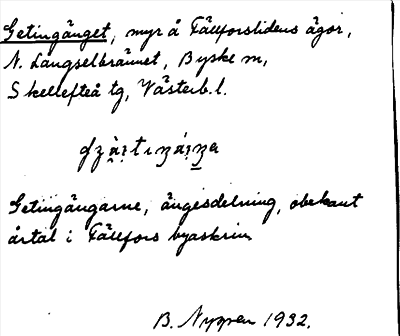 Getingänget, myr å Fällforslidens ägor,
N. Långselbrännet, Byske sn,
Skellefteå tg, Västerb.l.
Getingängarne, ängesdelning, obekant
årtal i Fällfors byaskrin
B. Nyqvan 1932.